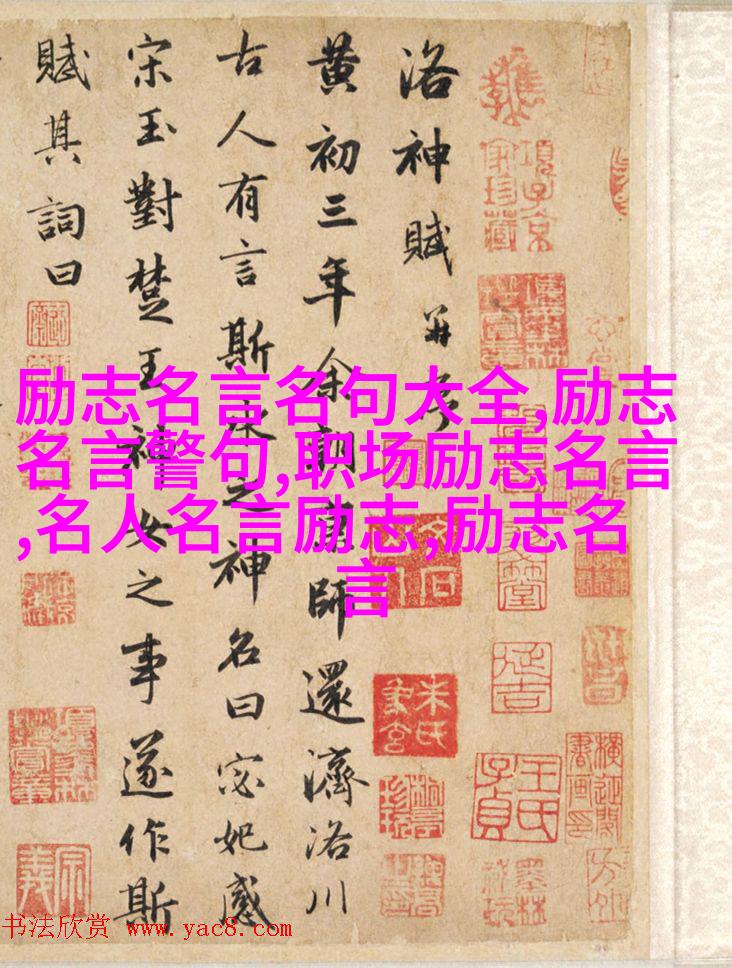 洛神賦并序
黃初三年余朝京師還濟洛川
古人有言斯水之神名曰宓妃感
宋玉對楚王神女之事遂作斯
賦其詞曰
項子京
家珍藏
朱氏
象玄
王氏
子貞
励志名言名句大全,励志
名言警句,职场励志名言
,名人名言励志,励志名
言
书法欣赏 www.yac8.com